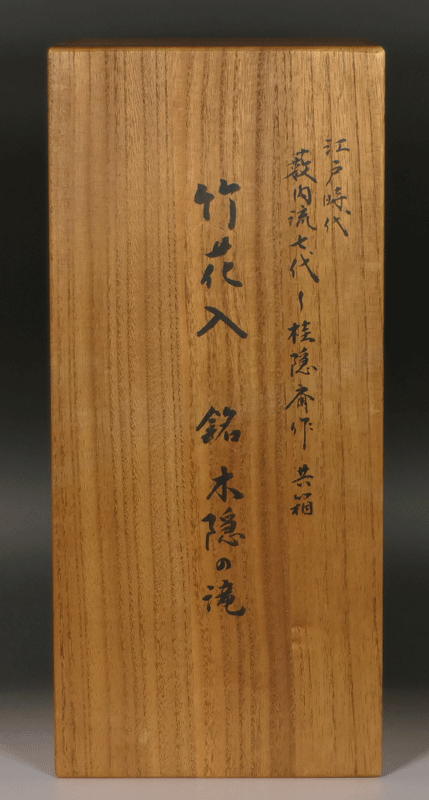 江戸時代
薮内流七代 桂隠斎作 共箱
竹花入 銘 木隠の滝